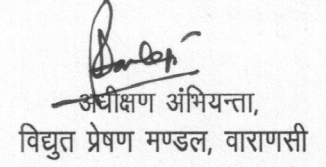 अधीक्षण अंभियन्ता,
विद्युत प्रेषण मण्डल, वाराणसी